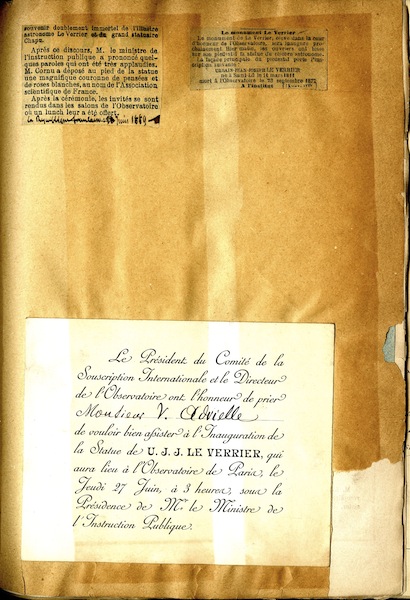 souvenir doublement immortel de l'illustre
astronome Le Verrier et du grand statuaire
Chapu.
Après ce discours, M. le ministre de
l'instruction publique a prononcé quel-
ques paroles qui ont été très applaudies.
M. Cornu a déposé au pied de la statue
une magnifique couronne de pensées et
de roses blanches, au nom de l'Association
scientifique de France.
Après la cérémonie, les invités se sont
rendus dans les salons de l'Observatoire
où un lunch leur a été offert.
La République française Juin 1889
Le monument Le Verrier
Le monument de Le Verrier, érigé dans la cour
d'honneur de l'Observatoire, sera inauguré pro-
chainement.
sur son piédestal la statue du célèbre astronome.
La façade principale du piédestal porte l'ins-
cription suivante
URBAIN-JEAN-JOSEPH LE VERRIER
né à Saint-Lô le 11 mars 1811
mort à l'Observatoire le 23 septembre 1877
A l'Institut
Le Président du Comité de la
Souscription Internationale et le Directeur
de l'Observatoire ont l'honneur de prier
Monsieur V. Advielle
de vouloir bien assister à l'Inauguration de
la Statue de U. J. J. LE VERRIER, qui
aura lieu à l'Observatoire de Paris, le
Jeudi 27 Juin, à 3 heures, sous la
Présidence de Mr. le Ministre de
l'Instruction Publique.